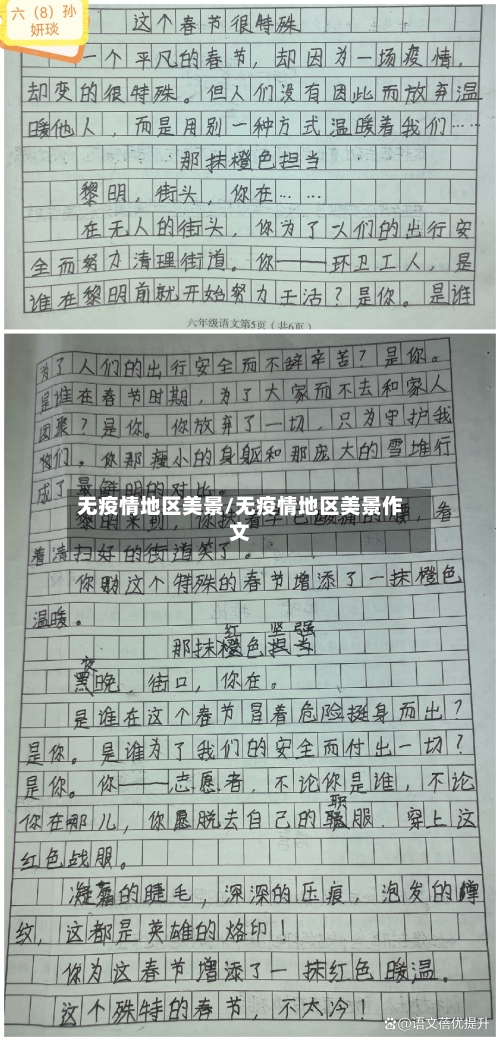 六（8）孙
妍琰
这个春节很特殊
一个平凡的春节，却因为一场疫情，
却变的很特殊。但人们没有因此而放弃温
暖他人，而是用别一种方式温暖着我们……
那抹橙色担当
黎明，街头，你在……
在无人的街头，你为了人们的出行安
全而努力清理街道。你——环卫工人，是
谁在黎明前就开始努力干活？是你。是谁
六年级语文第5页（共6页）
为了人们的出行安全而不辞辛苦？是你。
是谁在春节时期，为了大家而不去和家人
团聚？是你。你放弃了一切，只为守护我
们。你那瘦小的身躯和那庞大的雪堆行
成了最鲜明的对比。
无疫情地区美景/无疫情地区美景作
文
黎明来到，你扶着早已酸痛的腰，看
着清扫好的街道笑了。
你助这个特殊的春节增添了一抹橙色
温暖。
那抹红色坚强
夜晚，街口，你在。
是谁在这个春节冒着危险挺身而出？
是你。是谁为了我们的安全而付出一切？
是你。你——志愿者，不论你是谁，不论
你在哪儿，你愿脱去自己的职服，穿上这
红色战服。
凝霜的睫毛，深深的压痕，泡发的
纹，这都是英雄的烙印！
你为这春节增添了一抹红色暖温。
这个殊特的春节，不太冷！
@语文蓓优提升